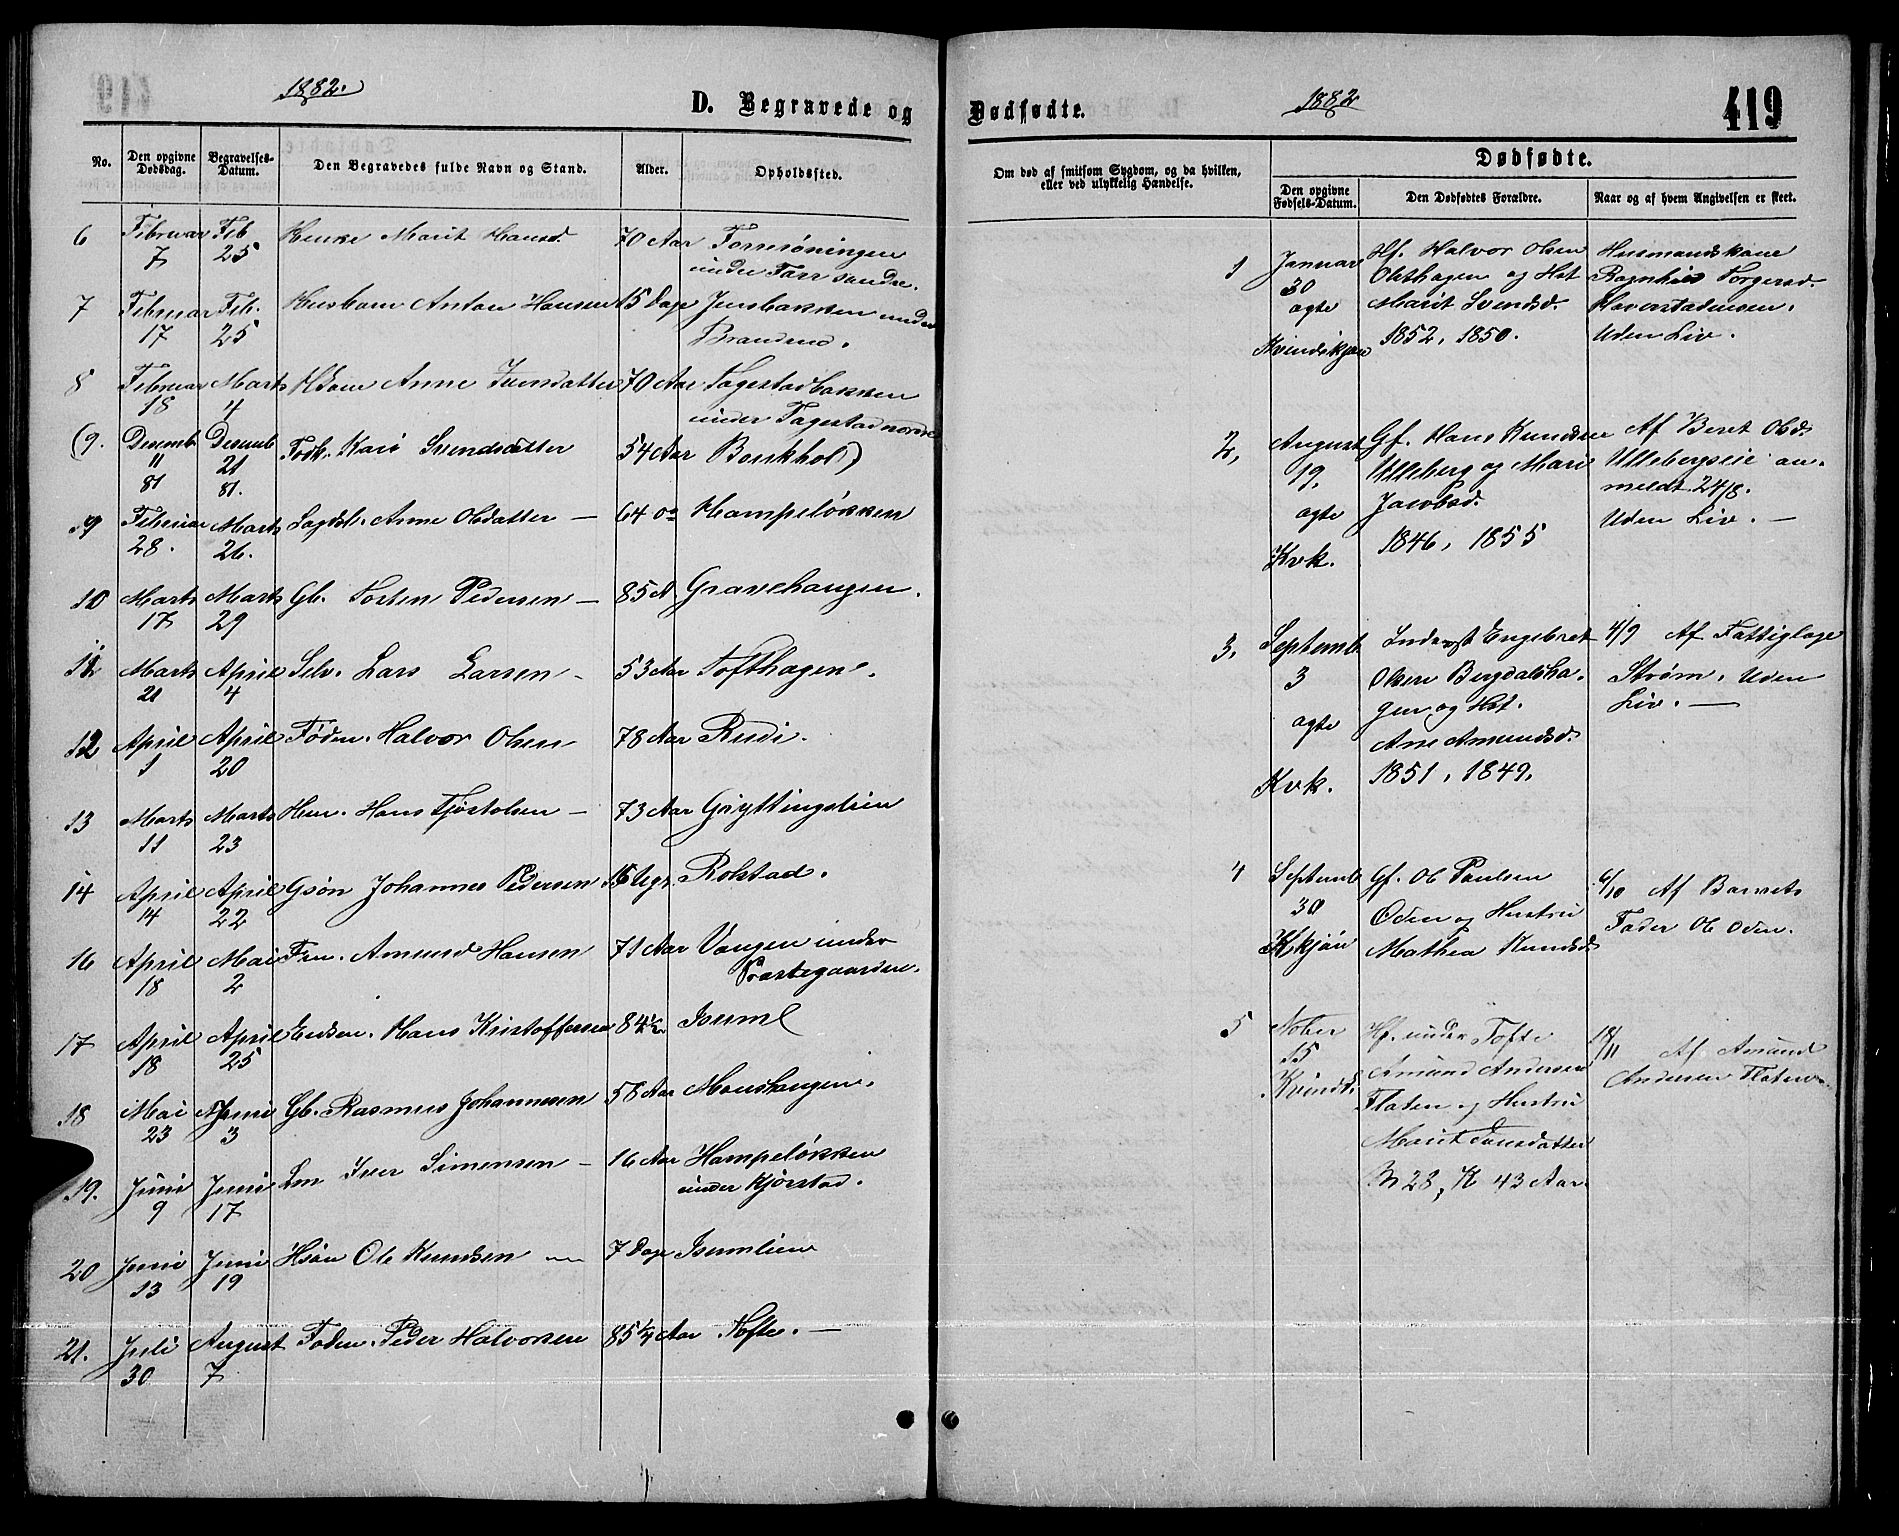 1882.
D. Begravede og
No.
Den opgivne Dødsdag.
Begravelses-Datum.
Den Begravedes fulde Navn og Stand.
Alder.
Opholdssted.
6 Februar 7 Feb 25 Marit Hansd. 70 Aar
under
7 Februar 17 Feb. 25 Husbarn Anton Hansen 15 Dage Jensbakken under
Brandvol.
8 Februar 18 Marts 4 Anne Iversdatter 70 Aar Tagestadbakken
under Tagestad nordre
(9. Decemb 11 81 Decemb 21 81. Kari Svendsdatter 54 Aar Bonkhol)
9 Februar 28. Marts 26. Anne Olsdatter — 64 Hampeløkken
10 Marts 17 Marts 29 Gb. Torsten Pedersen — 85 A Gravehaugen.
11 Marts 21 April 4 Selv. Lars Larsen - 53 Aar Tofthagen.
12 April 1 April 20 Føden. Halvor Olsen 78 Aar Rudi.
13 Marts 11 Marts 23 Hans Tjøstolsen — 73 Aar Gryttingslien
14 April 14 April 22 Gsøn Johannes Pedersen Rolstad.
16 April 18 Mai 2 Amund Hansen 71 Aar Vangen under
Præstegaarden.
17 April 18 April 25 Hans Kristoffersen 84½ Isuml
18 Mai 23 Juni 3 Gb. Rasmus Johannesen 58 Aar Moushaugen.
19. Juni 9 Juni 17 Lm Iver Simensen — 16 Aar Hampeløkken
under Kjørstad.
20 Juni 13 Juni 19 Hsøn Ole Knudsen — 7 Dage Isumlien
21. Juli 30 August 7 Føden. Peder Halvorsen 85¼ Aar Tofte. —
1882
Dødfødte.
419
Om død af smitsom Sygdom, og da hvilken,
eller ved ulykkelig Hændelse.
Dødfødte.
Den opgivne Fødsels-Datum.
Den Dødfødtes Forældre.
Naar og af hvem Angivelsen er skeet.
1 Januar Hf. Halvor Olsen Husmandskone
30 Olsthagen og Hst Ragnhild Torgersd.
ægte Marit Svendsd. Haverstadensen.
Kvindekjøn 1852, 1850. Uden Liv.
2, August Gf. Hans Knudsen Af Beret Olsd.
19, Ulleberg og Mari Ullebergseie an-
ægte Jacobsd. meldt 24/8.
Kvk. 1846, 1855 Uden Liv. —
3, Septemb Inderst Engebret 4/9 Af Fattiglæge
3 Olsen Bergdalsha- Strøm. Uden
ægte gen og Hst. Liv. —
Ane Amundsd.
Kvk. 1851, 1849,
4 Septemb Gf. Ole Paulsen 6/10 Af Barnets
30 Oden og Hustru Fader Ole Oden.
Kkjøn Mathea Knudsd.
5 Nober Hf. under Tofte 18/11 Af Amund
15 Amund Andersen Andersen Flaten
Kvindk. Flaten og Hustru
Marit Hansdatter
M 28, K 43 Aar